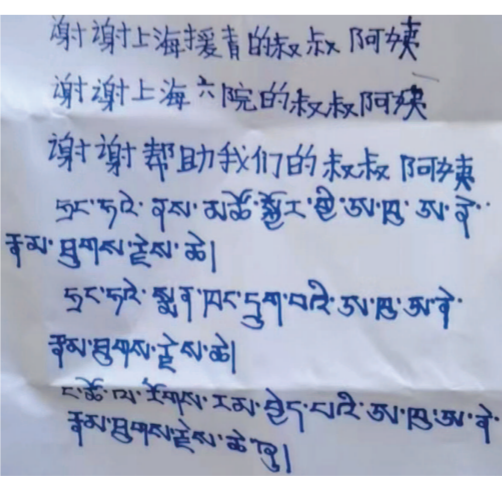 谢谢上海援青的叔叔阿姨
谢谢上海六院的叔叔阿姨
谢谢帮助我们的叔叔阿姨
ཧྲང་ཧའེ་ནས་མཚོ་སྔོར་ ཨ་ཁུ་ཨ་ནེ་
རྣམ་ཐུགས་རྗེ་ཆེ།
ཧྲང་ཧའེ་སྨན་ཁང་དྲུག་པའི་ཨ་ཁུ་ཨ་ནེ་
རྣམ་ཐུགས་རྗེ་ཆེ།
ང་ཚོ་ལ་རོགས་རམ་བྱེད་པའི་ཨ་ཁུ་ཨ་ནེ་
རྣམ་ཐུགས་རྗེ་ཆེ་ཞུ།